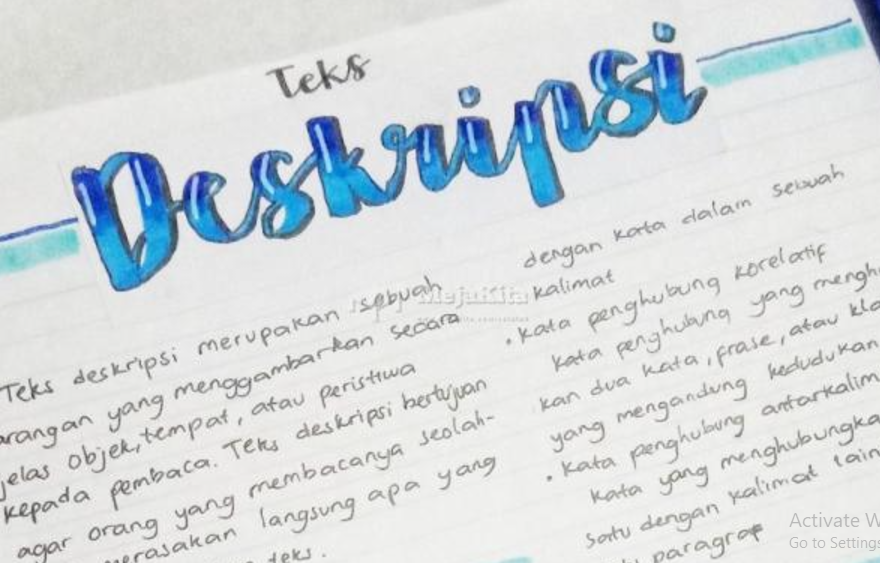 Teks
Deskripsi
Teks deskripsi merupakan sebuah
arangan yang menggambarkan secara
jelas objek, tempat, atau peristiwa
kepada pembaca. Teks deskripsi bertujuan
agar orang yang membacanya seolah-
merasakan langsung apa yang
teks.
dengan kata dalam sebuah
kalimat
• Kata penghubung korelatif
kata penghubung yang menghu
kan dua kata, frase, atau kla
yang mengandung kedudukan
• Kata penghubung antarkalim
kata yang menghubungka
satu dengan kalimat lain
paragraf
MejaKita
Activate W
Go to Settings